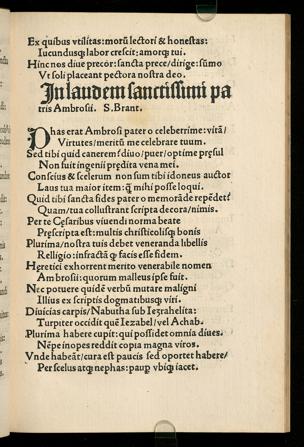 Ex quibus vtilitas: morũ lectori & honestas:
Iucundusq; labor crescit: amorq; tui.
Hinc nos diue precór: sancta prece/dirige: sũmo
Vt soli placeant pectora nostra deo.
In laudem sanctissimi pa
tris Ambrosii. S. Brant.
Phas erat Ambrosi pater o celeberrime: vitã/
Virtutes/meritũ me celebrare tuum.
Sed tibi quid canerem diuo/puer/optime pręsul
Non suit ingenii prędita vena mei.
Conscius & scelerum non sum tibi idoneus auctor
Laus tua maior item: q̃ mihi posse loqui.
Quid tibi sancta fides pater o memorãde repẽdet?
Quam/tua collustrant scripta decora/nimis.
Per te Cęsaribus viuendi norma beate
Pręscripta est: multis christicolisq; bonis
Plurima/nostra tuis debet veneranda libellis
Relligio: infractã q; facis esse fidem.
Hęretici exhorrent merito venerabile nomen
Ambrosii: quorum malleus ipse fuit.
Nec potuere quidẽ verbũ mutare maligni
Illius ex scriptis dogmatibusq; viri.
Diuicias carpis/Nabutha sub Iezrahelita:
Turpiter occidit quẽ Iezabel/vel Achab.
Plurima habere cupit: qui possidet omnia diues.
Nẽpe inopes reddit copia magna viros.
Vnde habeãt/cura est paucis sed oportet habere/
Per scelus atq; nephas: paup vbiq; iacet.